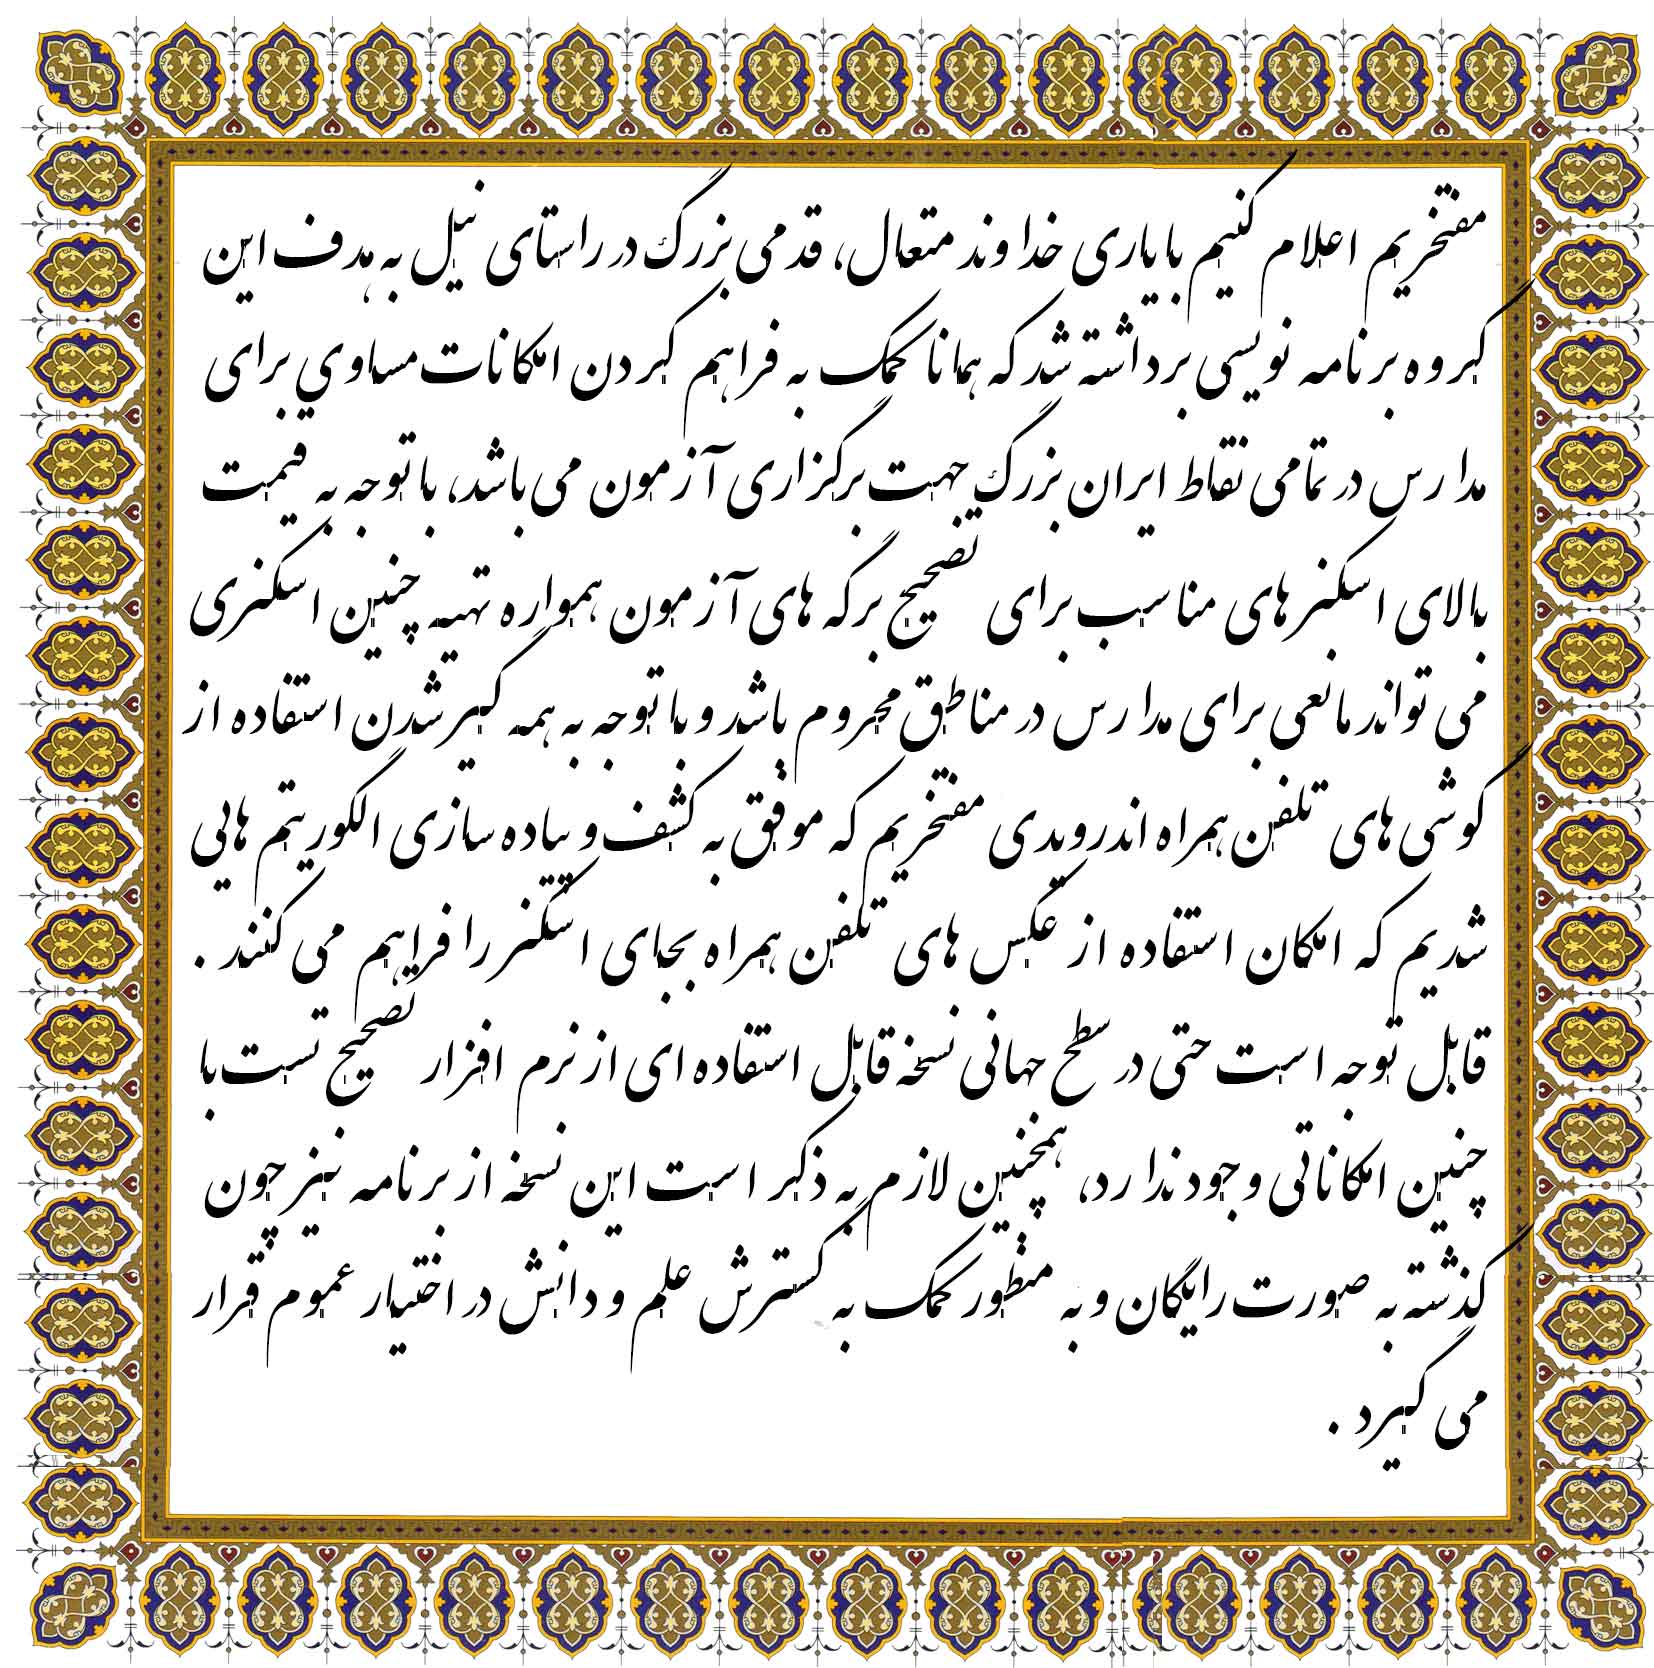 مفتخریم اعلام کنیم با یاری خداوند متعال، قدمی بزرگ در راستای نیل به هدف این
گروه برنامه نویسی برداشته شد که همانا کمک به فراهم کردن امکانات مساوی برای
مدارس در تمامی نقاط ایران بزرگ جهت برگزاری آزمون می باشد، با توجه به قیمت
بالای اسکنرهای مناسب برای تصحیح برگه های آزمون همواره تهیه چنین اسکنری
می تواند مانعی برای مدارس در مناطق محروم باشد و با توجه به همه گیر شدن استفاده از
گوشی های تلفن همراه اندرویدی مفتخریم که موفق به کشف و پیاده سازی الگوریتم هایی
شدیم که امکان استفاده از عکس های تلفن همراه بجای اسکنر را فراهم می کنند .
قابل توجه است حتی در سطح جهانی نسخه قابل استفاده ای از نرم افزار تصحیح تست با
چنین امکاناتی وجود ندارد، همچنین لازم به ذکر است این نسخه از برنامه نیز چون
گذشته به صورت رایگان و به منظور کمک به گسترش علم و دانش در اختیار عموم قرار
می گیرد .